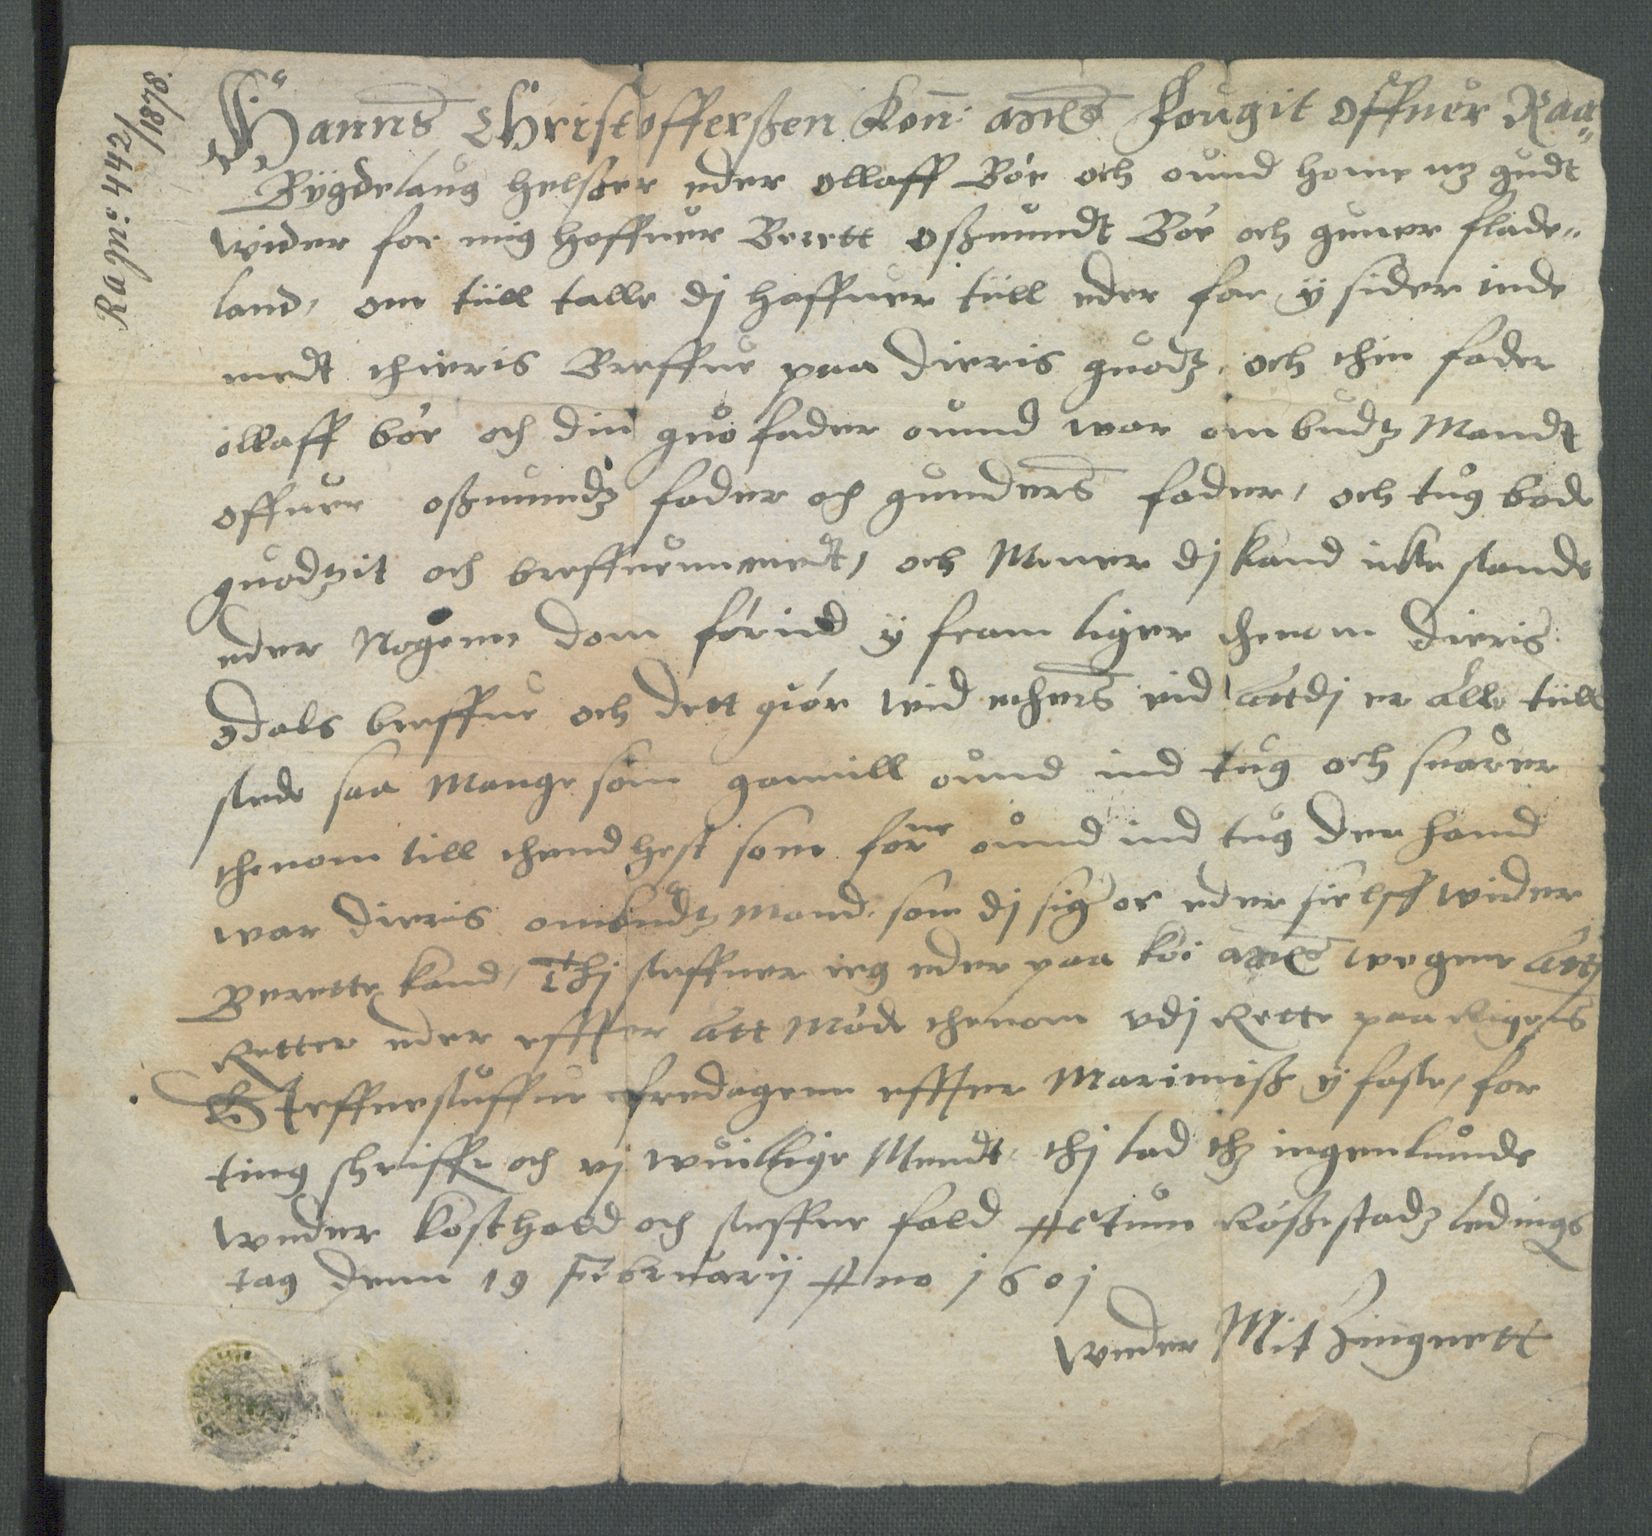 Rapn: 442/1878.
Hanns Christofferßen Kon: Matts Fougit offuer Raa„
Bÿgdelaug helßer eder ollaff Bóe och ound home mz gudt
wider for mig haffuer Berett oßmundt Bóe och guner flade„
land, om tiill talle dj haffuer tiill eder for ÿ sider inde
medt thieris Breffue paa dieris guodz, och thin fader
ollaff bóe och din guo fader ound war ombudz Mandt
offuer oßmundz fader och gunders fader, och tug bode
guodzit och breffuenn medt, och Mener dj kand icke stande
eder Nogenn dom förind ÿ fram liger thenom dieris
odals breffue och dett giór wid ethers eid attdj er alle tiill
stede saa Mange som gamill ound ind tug och suarer
thenom till thend hest som förre ound ind tug der hand
war dieris ombudz Mand, som dj sig or eder sielff wider
Berette kand, Thj steffner ieg eder paa Ko: Matts wegne att j
Retter eder effter att Móde thenom vdj Rette paa Rigens
Steffnestuffue fredagenn effter Marimiß ÿ faste, for
ting schriffr och vj wuillige Mendt, thj lad thz ingenlunde
vnder kosthold och steffne fald Actum Róßestadz ledings
tag denn 19 Februarij Ano 1601
vnder Mit Zingnett